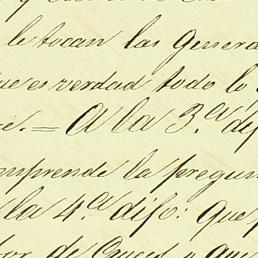 le tocan las Genera
ue es verdad todo lo
= A la 3.a dif
mprende la pregun
la 4.a difo: Que
de Cruces y que